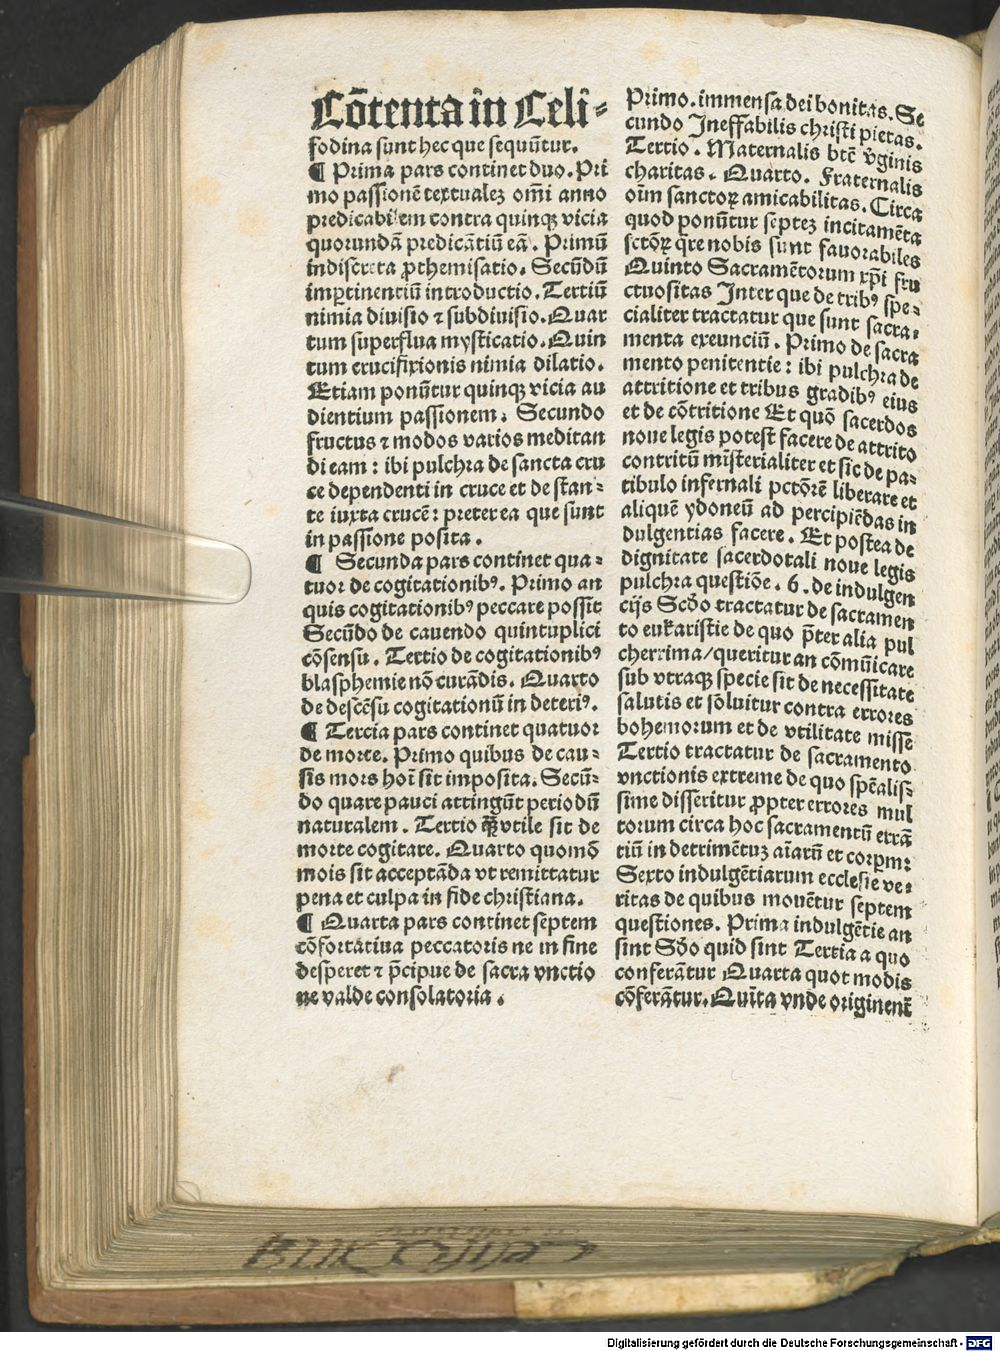 Cōtenta in Celi-
fodina sunt hec que sequūtur.
¶ Prima pars continet duo. Pri
mo passionē textualeꝫ om̄i anno
predicabilem contra quinqꝫ vicia
quorundā predicātiū eā. Primū
indiscreta ꝓthemisatio. Secūdū
imꝑtinentiū introductio. Tertiū
nimia diuisio ⁊ subdiuisio. Quar
tum suꝑflua mysticatio. Quin
tum crucifixionis nimia dilatio.
Etiam ponūtur quinqꝫ vicia au
dientium passionem. Secundo
fructus ⁊ modos varios meditan
di eam: ibi pulchra de sancta cru
ce dependenti in cruce et de stan-
te iuxta crucē: preterea que sunt
in passione posita.
¶ Secunda pars continet qua-
tuor de cogitationibꝰ. Primo an
quis cogitationibꝰ peccare possit
Secūdo de cauendo quintuplici
cōsensu. Tertio de cogitationibꝰ
blasphemie nō curādis. Quarto
de descēsu cogitationū in deteriꝰ.
¶ Tercia pars continet quatuor
de morte. Primo quibus de cau-
sis mors hoī sit imposita. Secū-
do quare pauci attingūt periodū
naturalem. Tertio vtile sit de
morte cogitare. Quarto quomō
mois sit acceptāda vt remittatur
pena et culpa in fide christiana.
¶ Quarta pars continet septem
cōfortatiua peccatoris ne in fine
desperet ⁊ p̄cipue de sacra vnctio
ne valde consolatoria.
Primo. immensa dei bonitas. Se
cundo Ineffabilis christi pietas.
Tertio. Maternalis btē v̄ginis
charitas. Quarto. Fraternalis
oīm sanctoꝝ amicabilitas. Circa
quod ponūtur septeꝫ incitamēta
sctōꝝ q̄re nobis sunt fauorabiles
Quinto Sacramētorum xp̄i fru
ctuositas Inter que de tribꝰ spe-
cialiter tractatur que sunt sacra-
menta exeunciū. Primo de sacra
mento penitentie: ibi pulchra de
attritione et tribus gradibꝰ eius
et de cōtritione Et quō sacerdos
noue legis potest facere de attrito
contritū mīsterialiter et sic de pa-
tibulo infernali pctōrē liberare et
aliquē ydoneū ad percipiēdas in
dulgentias facere. Et postea de
dignitate sacerdotali noue legis
pulchra questiōe. 6. de indulgen
cijs Scd̄o tractatur de sacramen
to eukaristie de quo p̄ter alia pul
cherrima/queritur an cōmūicare
sub vtraqꝫ specie sit de necessitate
salutis et soluitur contra errores
bohemorum et de vtilitate misse
Tertio tractatur de sacramento
vnctionis extreme de quo spēalis-
sime disseritur ꝓpter errores mul
torum circa hoc sacramentū errā
tiū in detrimētuꝫ aīarū et corꝑm:
Sexto indulgētiarum ecclesie ve-
ritas de quibus mouētur septem
questiones. Prima indulgētie an
sint Scd̄o quid sint Tertia a quo
conferātur Quarta quot modis
cōferātur. Quīta vnde originent̄
Digitalisierung gefördert durch die Deutsche Forschungsgemeinschaft - DFG